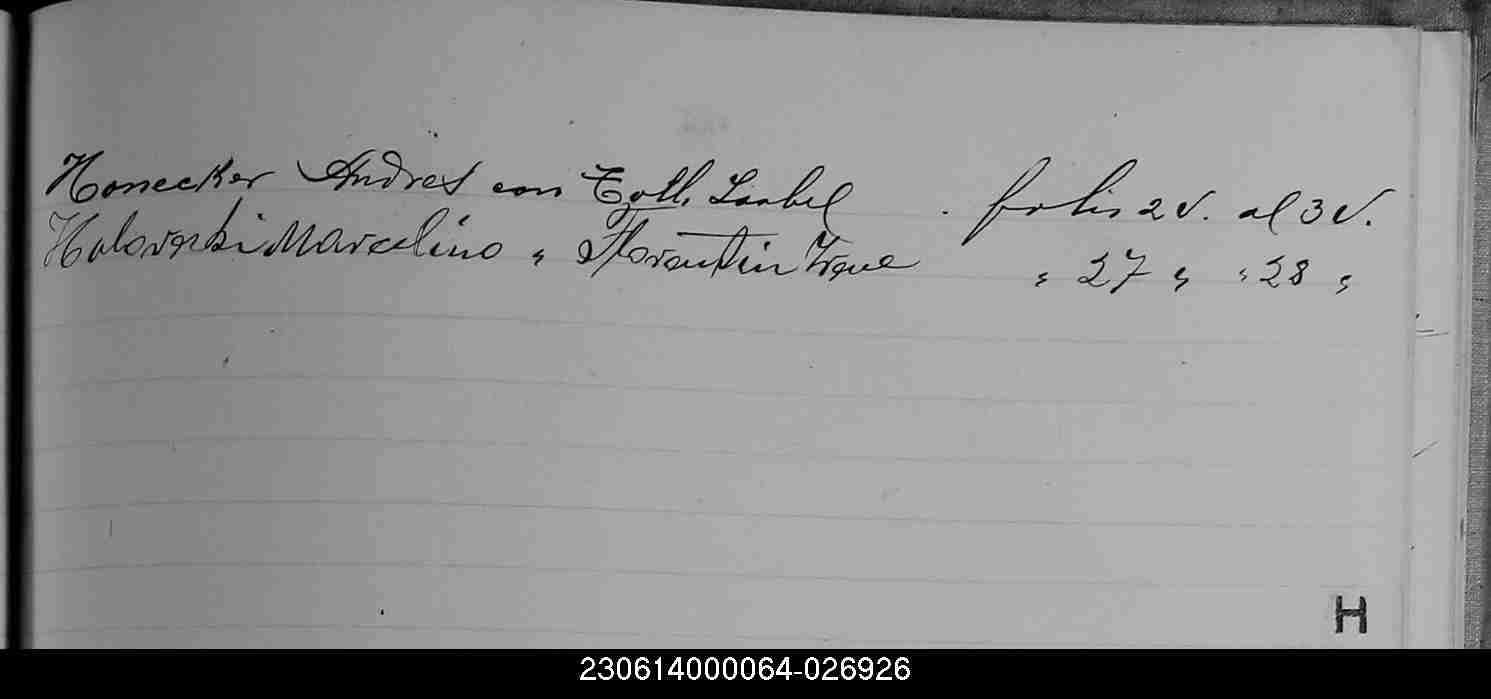 Honecker Andres con Toth Isabel . folio 2 v. al 3 v.
Holoverki Marcelino " Florentin Irene " 27 " " 28 "
H
230614000064-026926